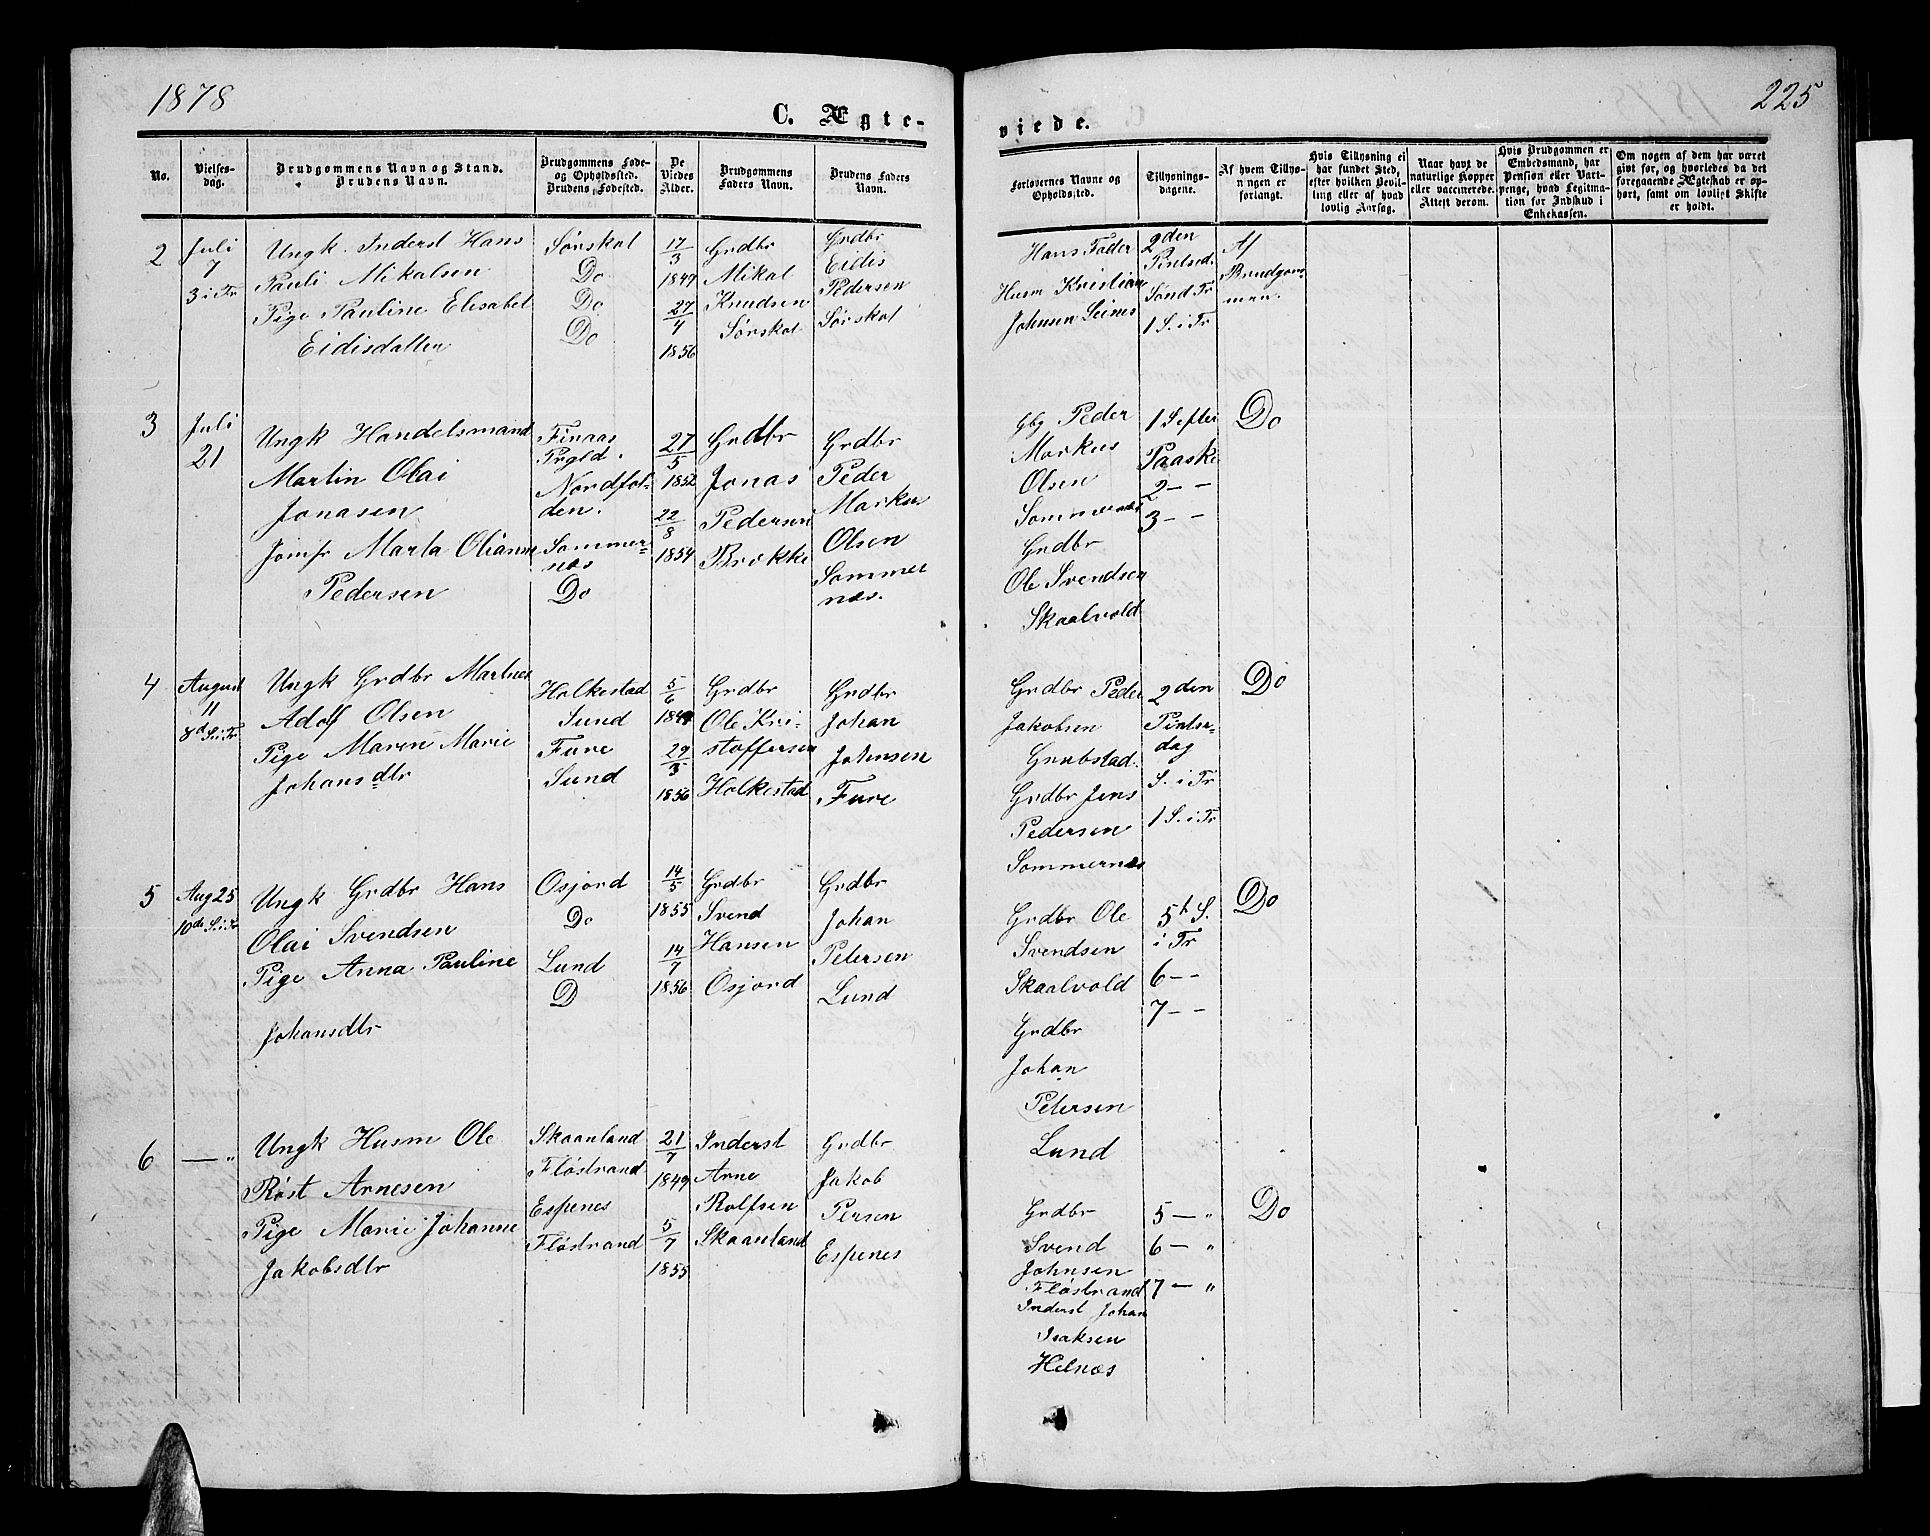 1878
225
C. Ægte-
viede.
No.
Vielses-
dag.
Brudgommens Navn og Stand.
Brudens Navn.
Brudgommens Føde-
og Opholdssted.
Brudens Fødested.
De
Viedes
Alder.
Brudgommens
Faders Navn.
Brudens Faders
Navn.
Forlovernes Navne og
Opholdssted.
Tillysnings-
dagene.
Af hvem Tillys-
ningen er
forlangt.
Hvis Tillysning ei
har fundet Sted,
efter hvilken Bevil-
ling eller af hvad
lovlig Aarsag.
Naar havt de
naturlige Kopper
eller vaccinerede.
Attest derom.
Hvis Brudgommen er
Embedsmand, har
Pension eller Vart-
penge, hvad Legitima-
tion for Indskud i
Enkekassen.
Om nogen af dem har været
givt før, og hvorledes da det
foregaaende Ægteskab er op-
hørt, samt om lovligt Skifte
er holdt.
2
Juli
7
3 i Tr
Ungk. Inderst Hans
Pauli Mikalsen
Pige Pauline Elisabet
Eidisdatter
Sørskot
Do
Do
Do
17/3
1849
27/4
1856
Grdbr
Mikal
Knudsen
Sørskot
Grdbr
Eidis
Pedersen
Sørskot
Hans Fader
Husm Kristian
Johnsen Seines
2den
Pintsed.
Sønd Tr
1 S. i Tr
Af
Brudgom-
men.
3
Juli
21
Ungk Handelsmand
Martin Olai
Jonasen
Jomfr Marta Olianna
Pedersen
Finaas
Prgld.
Nordfol-
den.
Sommer-
nes
Do
27/5
1852
22/8
1854
Grdbr
Jonas
Pedersen
Brekke
Grdbr
Peder
Markus
Olsen
Sommer
nes.
Gbg Peder
Markus
Olsen
Sommernes
Grdbr
Ole Svendsen
Skaalvold
1 S efter
Paaske
2 - -
3 - -
Do
4
August
11
8d S. i Tr
Ungk Grdbr Martines
Adolf Olsen
Pige Maren Marie
Johansdtr
Holkestad
Sund
Fure
Sund
5/6
1849
29/3
1856
Grdbr
Ole Kri-
stoffersen
Holkestad
Grdbr
Johan
Johnsen
Fure
Grdbr Peder
Jakobsen
Grubstad.
Grdbr Jens
Pedersen
Sommernes
2den
Pintse-
dag
S. i Tr
1 S. i Tr
Do
5
Aug 25
10de S. i Tr
Ungk Grdbr Hans
Olai Svendsen
Pige Anna Pauline
Johansdtr
Osjord
Do
Lund
D
14/5
1855
14/7
1856
Grdbr
Svend
Hansen
Osjord
Grdbr
Johan
Petersen
Lund
Grdbr Ole
Svendsen
Skaalvold
Grdbr
Johan
Petersen
Lund
5t S.
i Tr
6 - -
7 - -
Do
6
— "
Ungk Husm Ole
Røst Arnesen
Pige Marie Johanne
Jakobsdtr
Skaanland
Fløstrand
Espenes
Fløstrand
21/7
1849
5/7
1855
Inderst
Arne
Rolfsen
Skaanland
Grdbr
Jakob
Persen
Espenes
Grdbr
Svend
Johnsen
Fløstrand
Inderst Johan
Isaksen
Helnæs
5 — "
6 — "
7 — "
Do